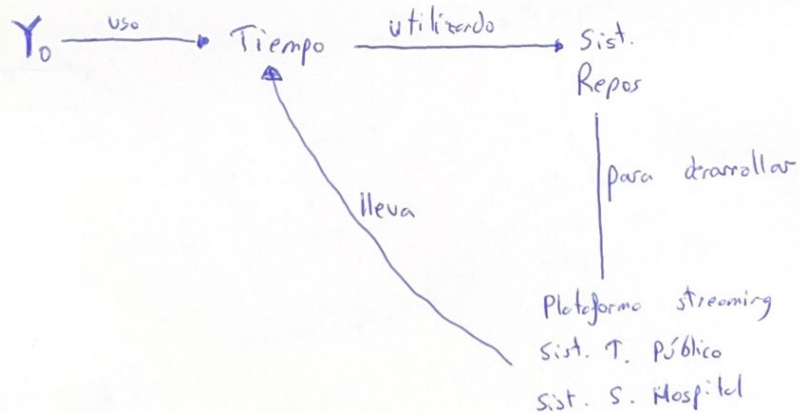 Yo
uso
Tiempo
utilizando
Sist.
Repos
para desarrollar
lleva
Plataforma streaming
Sist. T. Público
Sist. S. Hospital